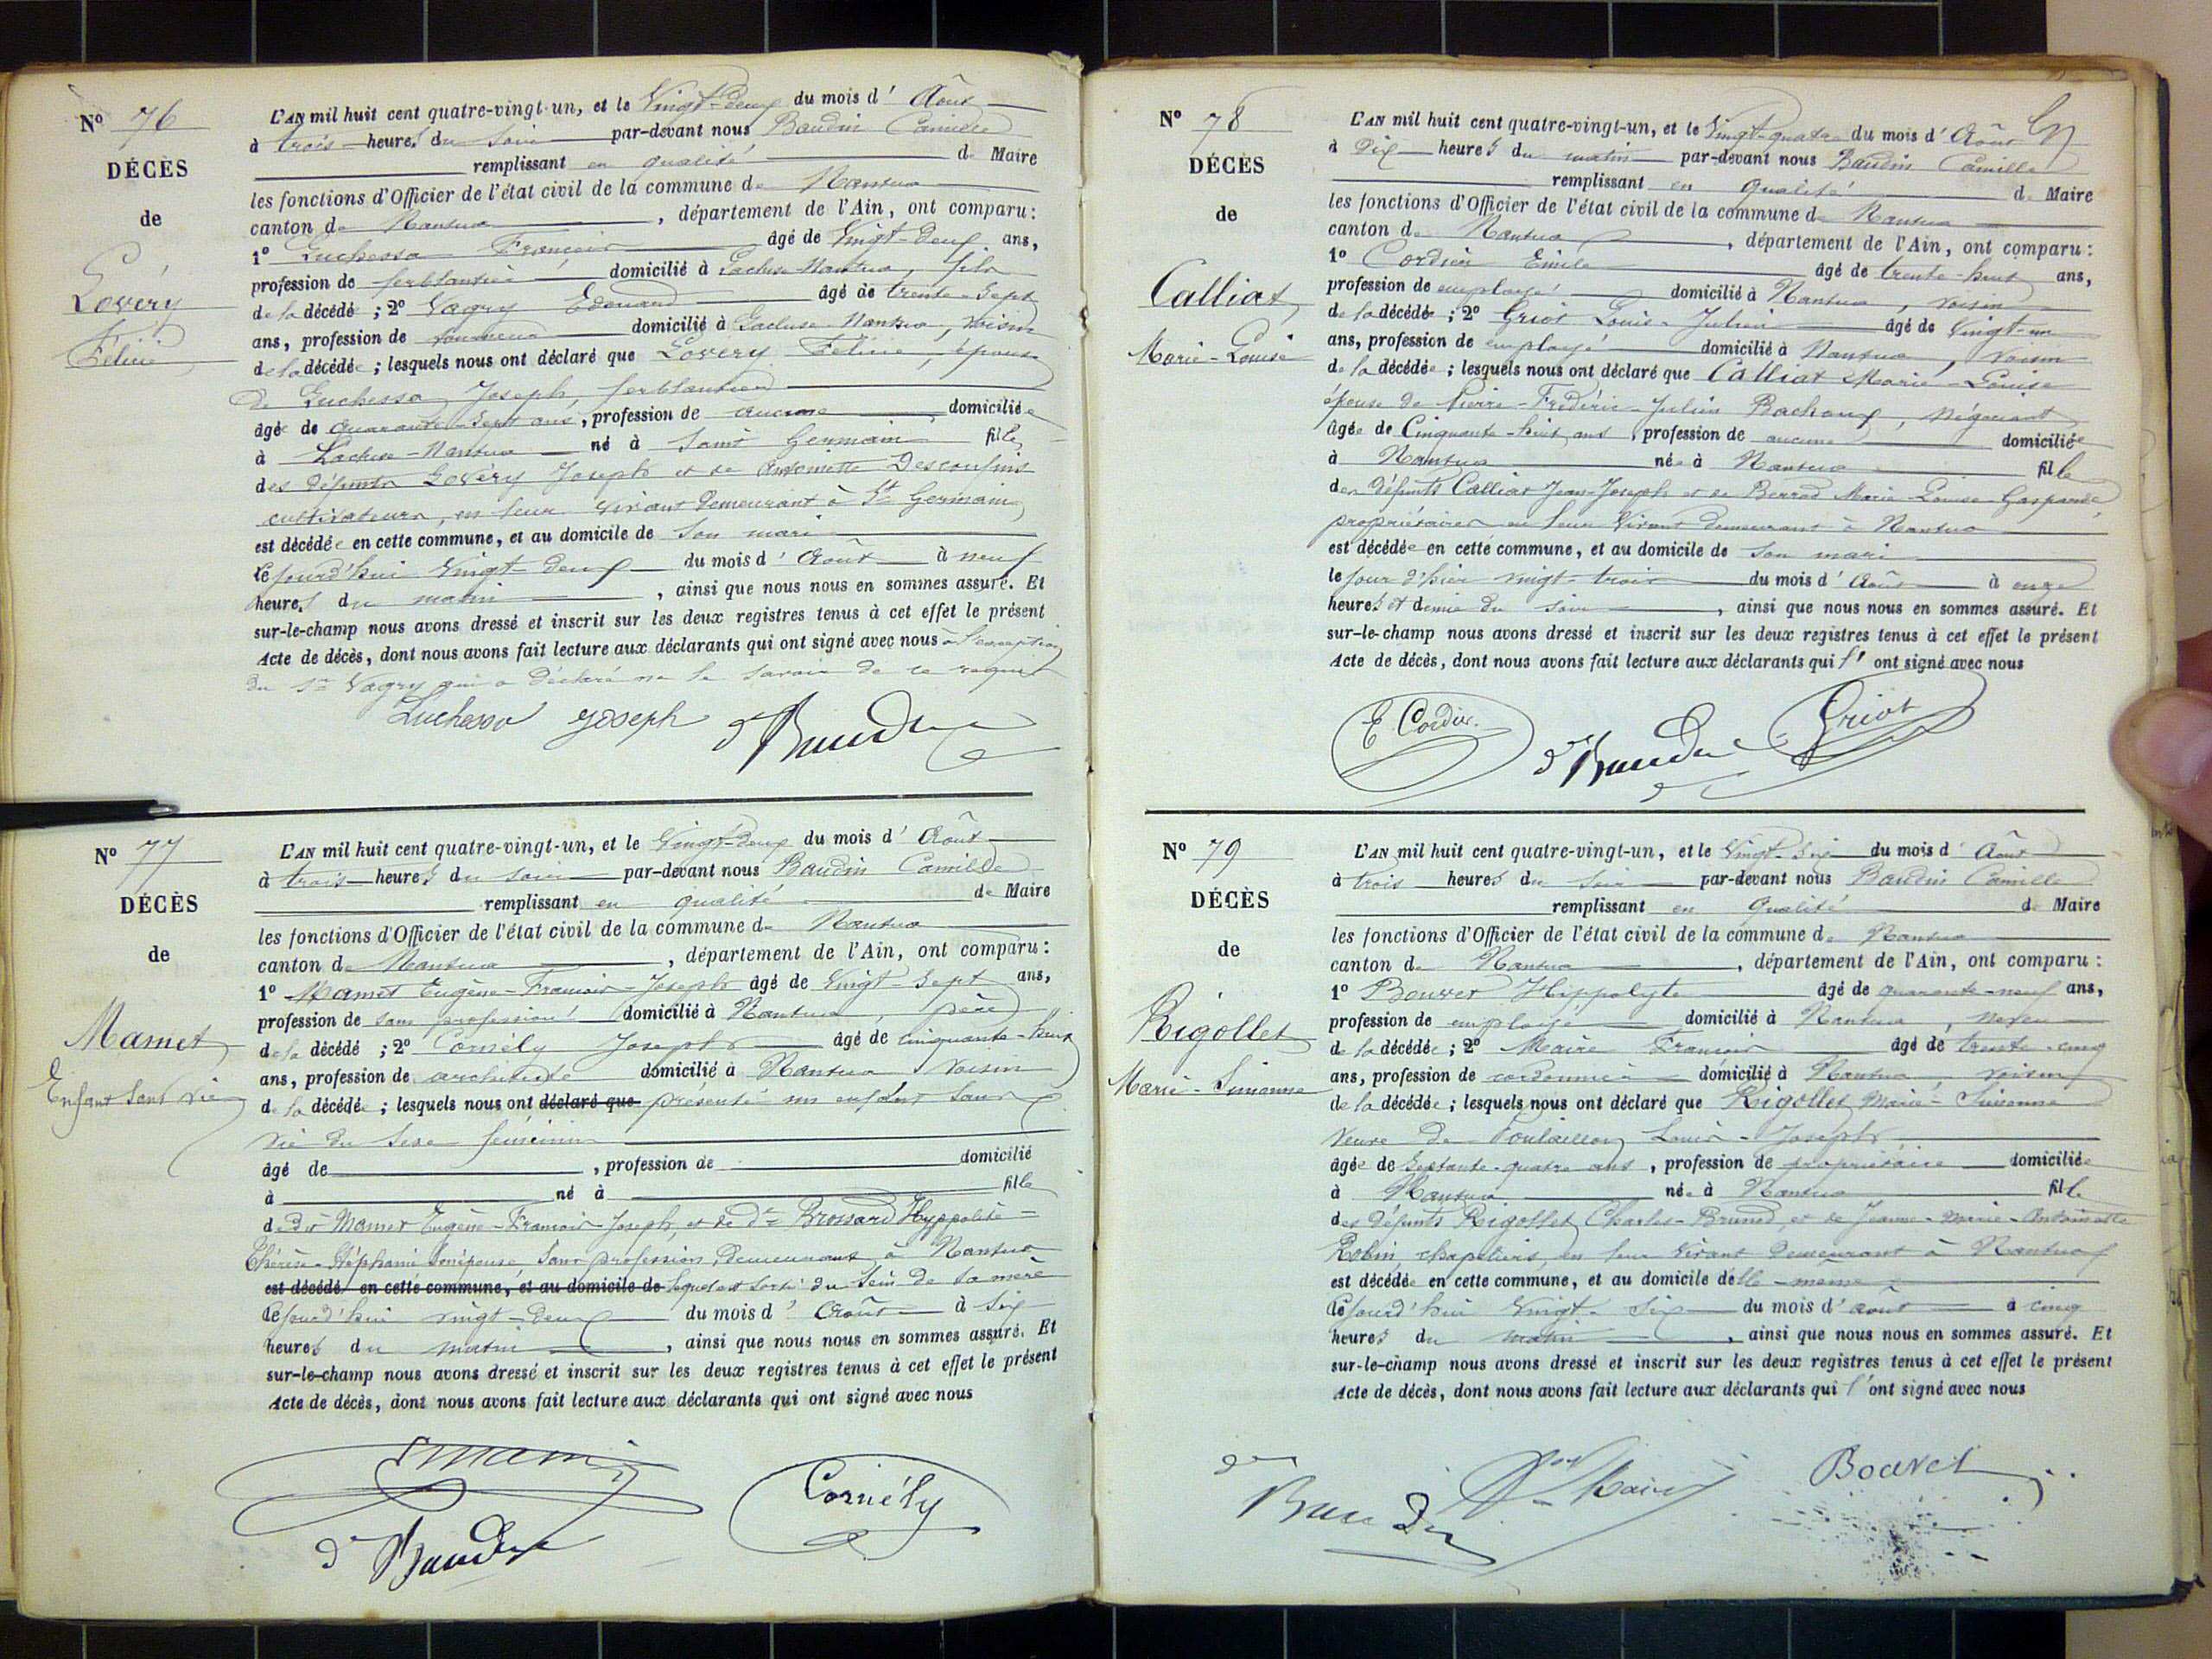 Nº 76
DÉCÈS
de
Lovéry
Félicie
L'AN mil huit cent quatre-vingt-un, et le Vingt-deux du mois d' Août
à trois heures du Soir par-devant nous Baudin Camille
remplissant en qualité de Maire
les fonctions d'Officier de l'état civil de la commune de Nantua
canton de Nantua, département de l'Ain, ont comparu:
1º Luchessa François âgé de Vingt-deux ans,
profession de ferblantier domicilié à Lacluse-Nantua, fils
de la décédé; 2º Vagry Edouard âgé de trente-sept
ans, profession de domicilié à Lacluse-Nantua, voisin
de la décédée; lesquels nous ont déclaré que Lovéry Félicie, épouse
de Luchessa Joseph, ferblantier
âgée de quarante-sept ans, profession de aucune domiciliée
à Lacluse-Nantua né à Saint Germain fille
des défunts Lovéry Joseph et de Antoinette Descoufins
cultivateurs, en leur vivant demeurant à St Germain
est décédée en cette commune, et au domicile de son mari
cejourd'hui Vingt-deux du mois d' Août à neuf
heures du matin, ainsi que nous nous en sommes assuré. Et
sur-le-champ nous avons dressé et inscrit sur les deux registres tenus à cet effet le présent
Acte de décès, dont nous avons fait lecture aux déclarants qui ont signé avec nous à l'exception
du Sr Vagry qui a déclaré ne le savoir de ce requis
Luchessa Joseph Dr Baudin
Nº 77
DÉCÈS
de
Mamet
Enfant sans vie
L'AN mil huit cent quatre-vingt-un, et le Vingt-deux du mois d' Août
à trois heures du soir par-devant nous Baudin Camille
remplissant en qualité de Maire
les fonctions d'Officier de l'état civil de la commune de Nantua
canton de Nantua, département de l'Ain, ont comparu:
1º Mamet Eugène-François-Joseph âgé de Vingt-sept ans,
profession de sans profession domicilié à Nantua, père
de la décédé; 2º Cornély Joseph âgé de cinquante-huit
ans, profession de architecte domicilié à Nantua voisin
de la décédée; lesquels nous ont déclaré que présenté un enfant sans
vie du sexe féminin
âgé de, profession de domicilié
à né à fille
de dit Mamet Eugène-François-Joseph, et de dme Brossard Hyppolite-
Thérèse-Stéphanie son épouse sans profession, demeurant à Nantua
est décédé en cette commune, et au domicile de lequel est sorti du sein de sa mère
cejourd'hui vingt-deux du mois d' Août à six
heures du matin, ainsi que nous nous en sommes assuré. Et
sur-le-champ nous avons dressé et inscrit sur les deux registres tenus à cet effet le présent
Acte de décès, dont nous avons fait lecture aux déclarants qui ont signé avec nous
Cornély
Dr Baudin
Nº 78
DÉCÈS
de
Calliat
Marie-Louise
L'AN mil huit cent quatre-vingt-un, et le Vingt-quatre du mois d' Août
à Dix heures du matin par-devant nous Baudin Camille
remplissant en qualité de Maire
les fonctions d'Officier de l'état civil de la commune de Nantua
canton de Nantua, département de l'Ain, ont comparu:
1º Cordier Emile âgé de trente-huit ans,
profession de employé domicilié à Nantua, voisin
de la décédée; 2º Griot Louis-Julien âgé de Vingt-un
ans, profession de employé domicilié à Nantua, voisin
de la décédée; lesquels nous ont déclaré que Calliat Marie-Louise
épouse de Pierre-Frédéric-Julien Bachoux, négociant
âgée de Cinquante-huit ans, profession de aucune domiciliée
à Nantua née à Nantua fille
des défunts Calliat Jean-Joseph et de Berrod Marie-Louise-Gasparde
propriétaires en leur vivant demeurant à Nantua
est décédée en cette commune, et au domicile de son mari
le jour d'hier vingt-trois du mois d' Août à onze
heures et demie du soir, ainsi que nous nous en sommes assuré. Et
sur-le-champ nous avons dressé et inscrit sur les deux registres tenus à cet effet le présent
Acte de décès, dont nous avons fait lecture aux déclarants qui l'ont signé avec nous
E. Cordier Dr Baudin Griot
Nº 79
DÉCÈS
de
Rigollet
Marie-Simonne
L'AN mil huit cent quatre-vingt-un, et le Vingt-Six du mois d' Août
à trois heures du soir par-devant nous Baudin Camille
remplissant en qualité de Maire
les fonctions d'Officier de l'état civil de la commune de Nantua
canton de Nantua, département de l'Ain, ont comparu:
1º Bouvet Hippolyte âgé de quarante-neuf ans,
profession de employé domicilié à Nantua, neveu
de la décédée; 2º Maire François âgé de trente-cinq
ans, profession de cordonnier domicilié à Nantua voisin
de la décédée; lesquels nous ont déclaré que Rigollet Marie-Simonne
veuve de Poulaillon Louis-Joseph
âgée de Septante-quatre ans, profession de propriétaire domiciliée
à Nantua née à Nantua fille
des défunts Rigollet Charles-Brunod, et de Jeanne-Marie-Antoinette
Robin, chapeliers, en leur vivant demeurant à Nantua
est décédée en cette commune, et au domicile d'elle-même
cejourd'hui Vingt-Six du mois d' août à cinq
heures du matin, ainsi que nous nous en sommes assuré. Et
sur-le-champ nous avons dressé et inscrit sur les deux registres tenus à cet effet le présent
Acte de décès, dont nous avons fait lecture aux déclarants qui l'ont signé avec nous
Dr Baudin Maire Bouvet